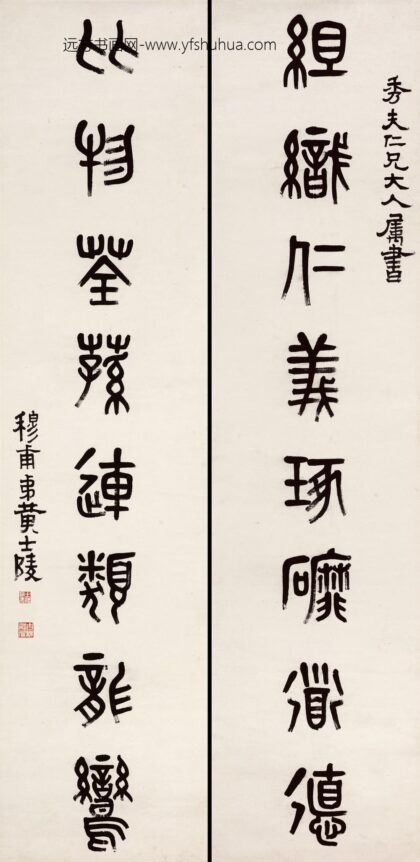 秀夫仁兄大人属書
組織仁義琢礳道德
比物荃蓀連類龍鸞
穆甫弟黄士陵
远方书画网-www.yfshuhua.com